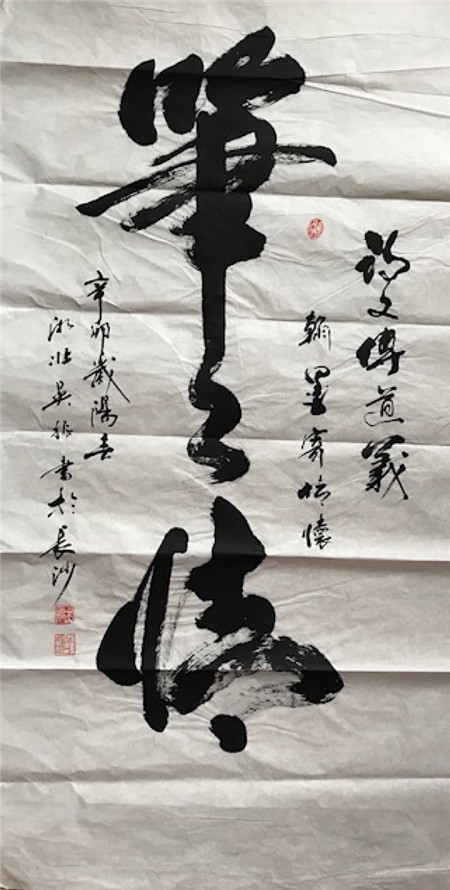 詩文傳道義
翰墨寄情懷
筆之情
辛卯歲陽春
湘北吳書於長沙